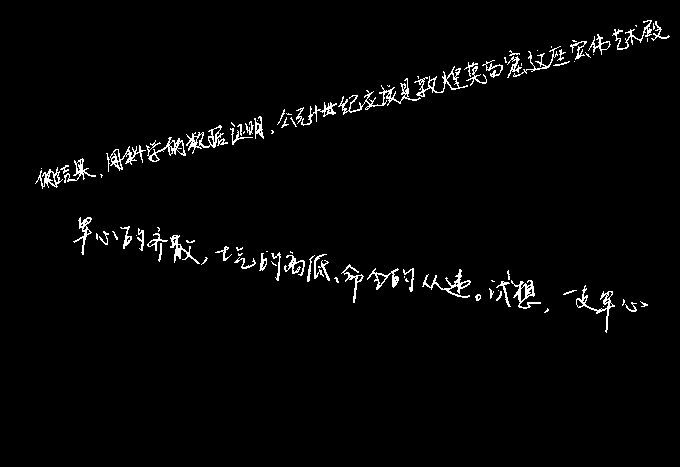 的结果,用科学的数据证明,公元卅世纪应该是敦煌莫高窟这座宏伟艺术殿
军心的齐散,士气的高低、命令的从违。试想,一支军心